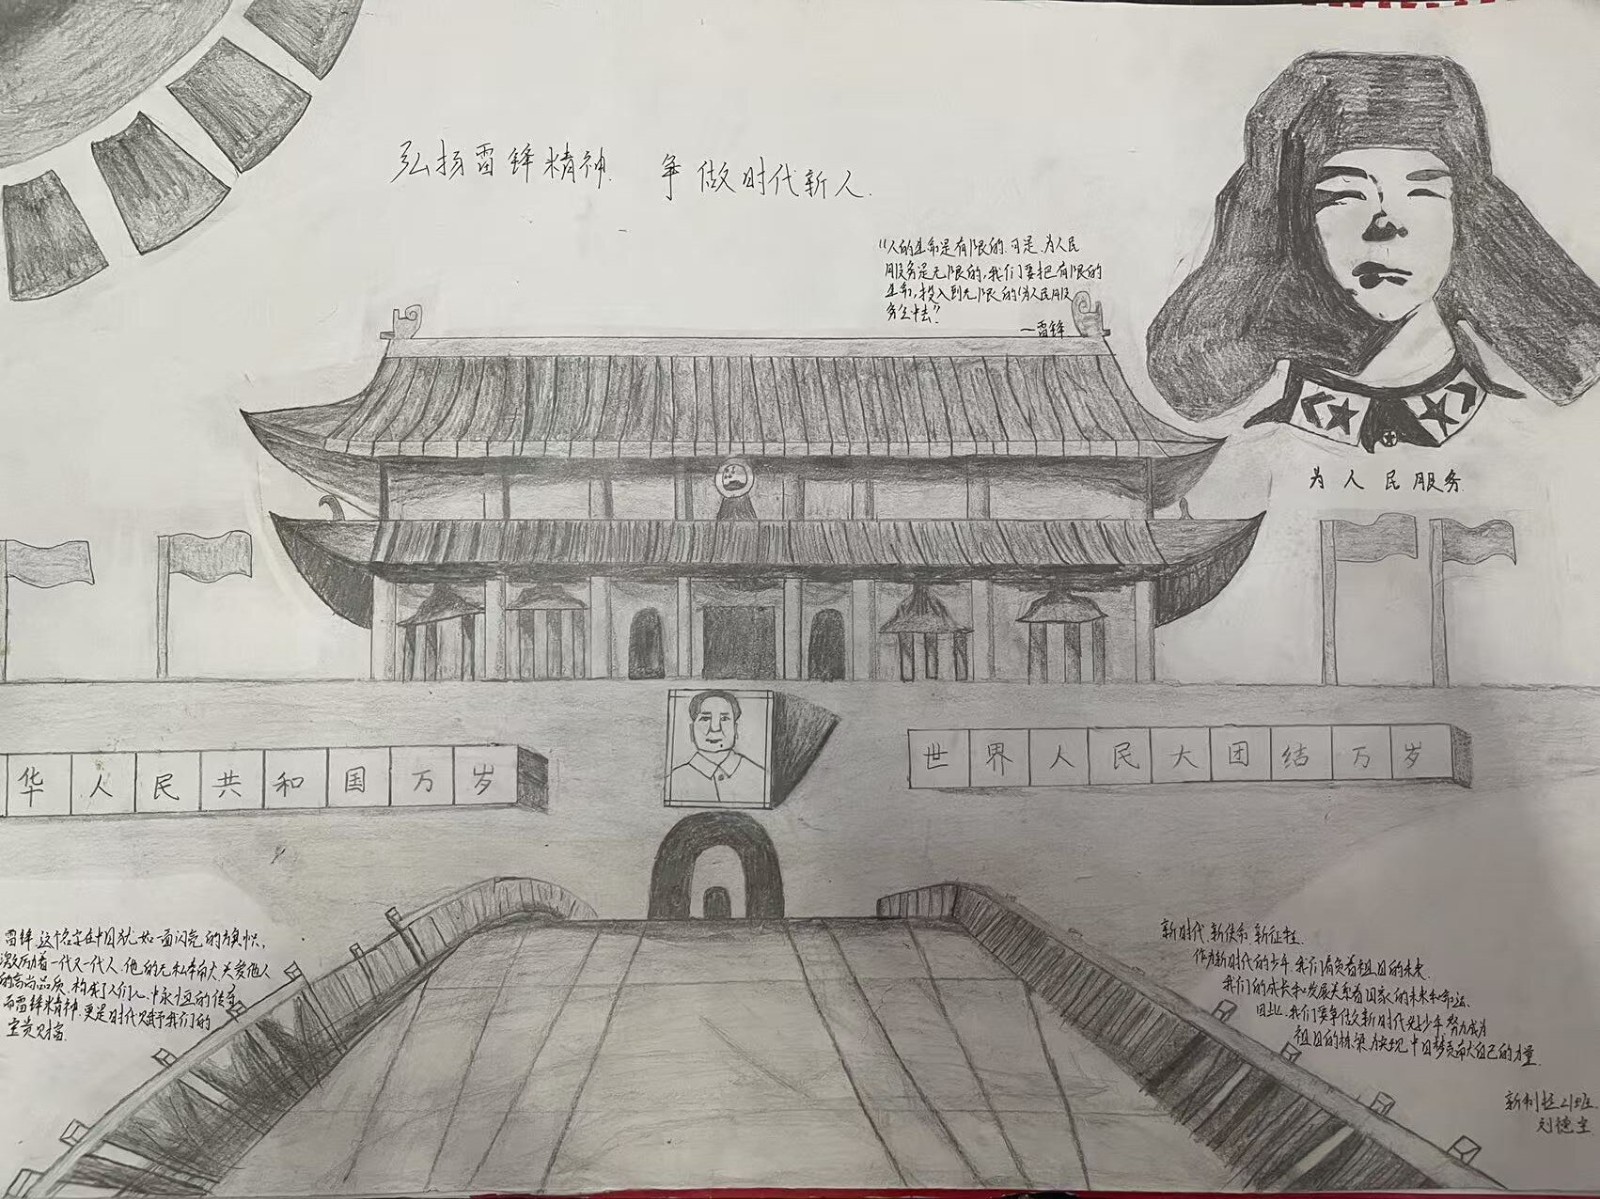 弘扬雷锋精神 争做时代新人.
"人的生命是有限的.可是.为人民
服务是无限的,我们要把有限的
生命,投入到无限的"为人民服
务之中去"
—雷锋
为人民服务
华人民共和国万岁
世界人民大团结万岁
雷锋.这个名字在中国犹如一面闪亮的旗帜,
激励着一代又一代人.他的无私奉献.关爱他人
的高尚品质.构成了人们心中永恒的传奇
而雷锋精神.更是时代赋予我们的
宝贵财富
新时代.新使命.新征程.
作为新时代的少年.我们肩负着祖国的未来.
我们的成长和发展关系着国家的未来和命运.
因此.我们要争做新时代好少年.努力成为
祖国的栋梁.为实现中国梦贡献自己的力量.
21班
刘